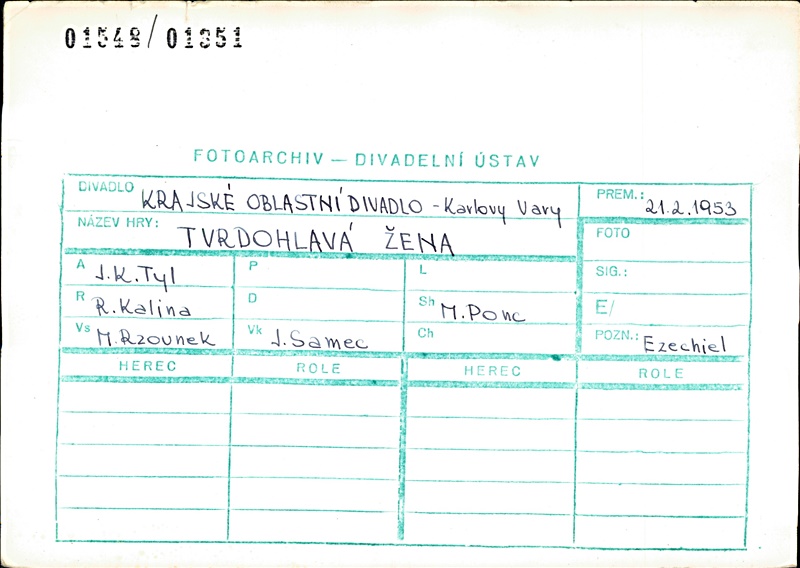 01549/01351
FOTOARCHIV — DIVADELNÍ ÚSTAV
DIVADLO KRAJSKÉ OBLASTNÍ DIVADLO - Karlovy Vary PREM.: 21.2.1953
NÁZEV HRY: TVRDOHLAVÁ ŽENA FOTO
A J.K.Tyl P L SIG.:
R R.Kalina D Sh M.Ponc E/
Vs M.Rzounek Vk J.Samec Ch POZN.: Ezechiel
HEREC ROLE HEREC ROLE